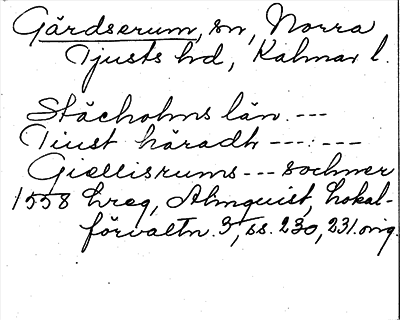 Gärdserum, sn, Norra
Tjusts hd, Kalmar l.
Stächolms län. ---
Tiust häradh ---:---
Giellisrums --- sochner
1558 hreg, Almquist, Lokal-
förvaltn. 3, ss. 230, 231. orig.